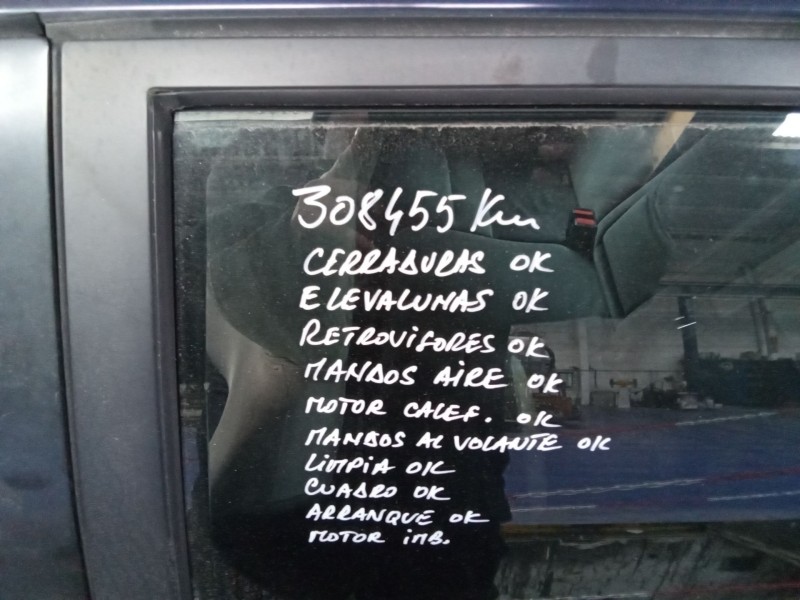 308455 Km
CERRADURAS OK
ELEVALUNAS OK
RETROVISORES OK
MANDOS AIRE OK
MOTOR CALEF. OK
MANDOS AL VOLANTE OK
LIMPIA OK
CUADRO OK
ARRANQUE OK
MOTOR INB.